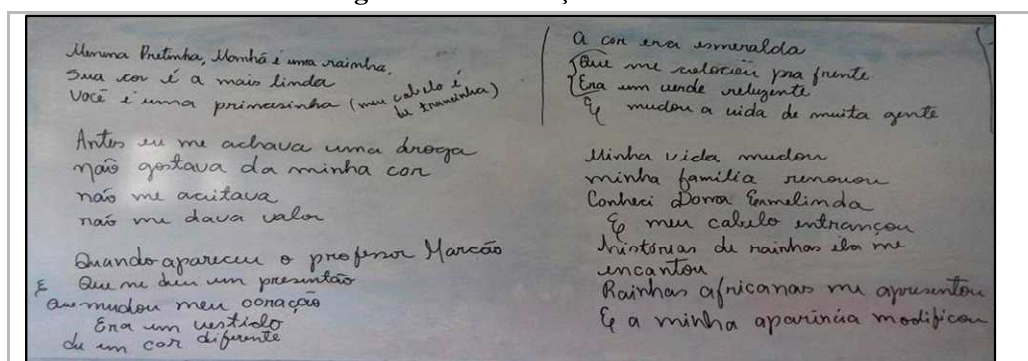 Menina Pretinha, Mamhã é uma rainha,
Sua cor é a mais linda
Você é uma primcesinha (meu cabelo é
de trancinha)
Antes eu me achava uma droga
não gostava da minha cor
não me aceitava
não me dava valor
Quando apareceu o professor Marcão
E Que me deu um presentão
Que mudou meu coração
Era um vestido
de um cor diferente
A cor era esmeralda
Que me colocou pra frente
Era um verde reluzente
E mudou a vida de muita gente
Minha vida mudou
minha família renovou
Conheci Dona Ermelinda
E meu cabelo entrançou
histórias de rainhas ela me
encantou
Rainhas africanas me apresentou
E a minha aparência modificou